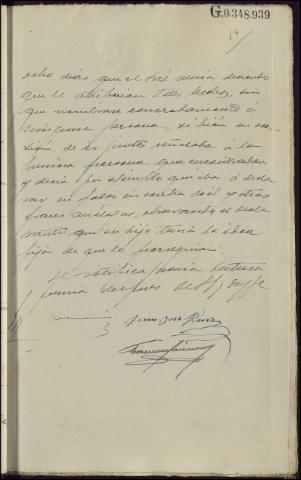 G.0.348.939
14
ocho dias que el José venia diciendo
que le atribuian tales hechos, sin
que nombrase concretamente á
ninguna persona, si bien
de los juntos señalaba á la
primera persona que encontraba
y decia por ejemplo que iba á decla
rar en favor en contra de él y otras
frases analogas, observando el decla
rante que su hijo tenia la idea
fija de que lo perseguian.
Se ratifica previa lectura
y firma despues de S.S. doy fe
Juan José Perez